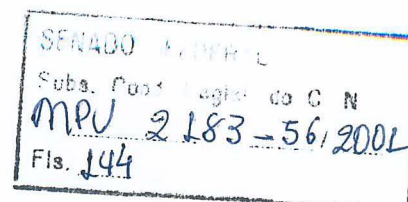 SENADO
Subs. do C N
MPV 2183-56,2001
Fls. 144